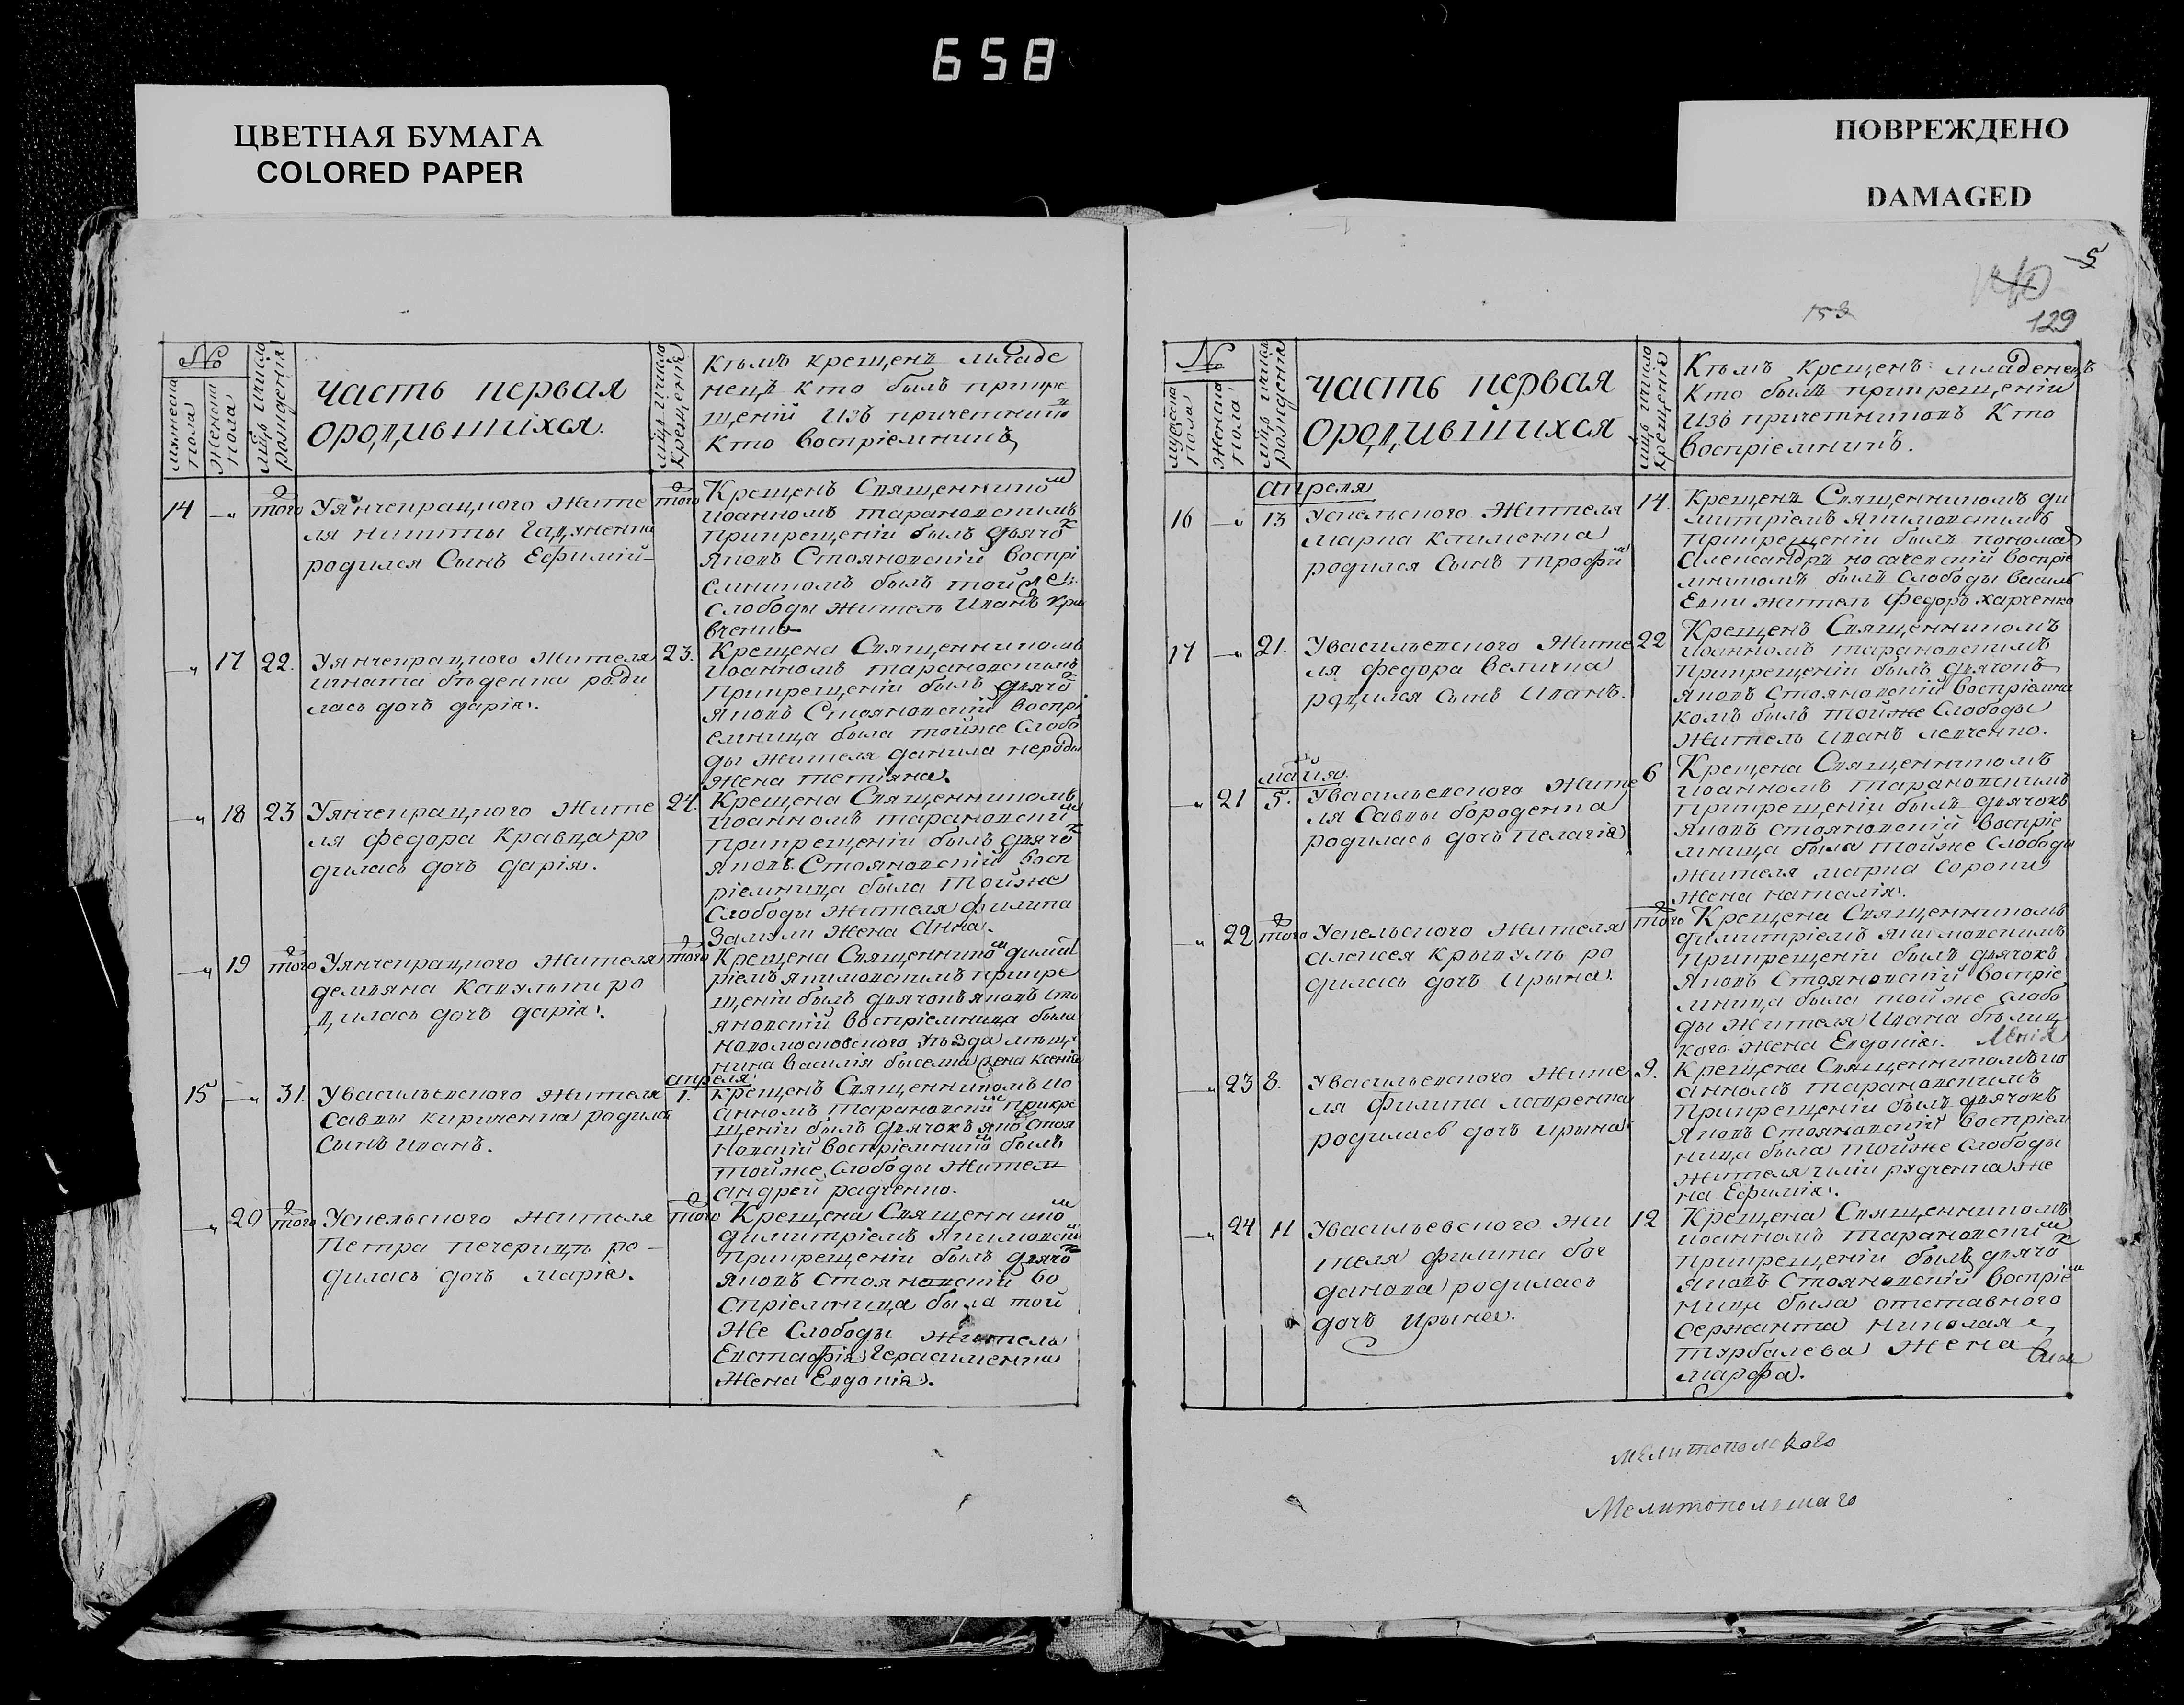 658
ЦВЕТНАЯ БУМАГА
COLORED PAPER
ПОВРЕЖДЕНО
DAMAGED
5
153
129
№
мужеска пола
женска пола
рождения
часть первая
ородившихся.
крещенія
Кѣмъ крещенъ младе
нецъ кто былъ прикре
щеніи изъ причетнико
кто воспріемникъ
14
того
Уянчекрацкого жите
ля никиты
родился Сынъ Ефимій
того
Крещенъ Священником
иоанномъ тарановскимъ
прикрещеніи былъ дьячок
яковъ Стояновскій воспрі
емникомъ былъ той же
слободы житель Иванъ
вченко
17
22.
Уянчекрацкого жителя
игната бѣденка роди
лась дочь дарія.
23.
Крещена Священникомъ
иоанномъ тарановскимъ
прикрещеніи былъ дьячок
яковъ Стояновскій воспрі
емница была тойже Слобо
ды жителя данила
жена тетіяна.
18
23
Уянчекрацкого жите
ля федора Кравца ро
дилась дочь дарія.
24.
Крещена Священникомъ
иоанномъ тарановским
прикрещеніи былъ дьячок
яковъ Стояновскій восп
ріемница была тойже
слободы жителя филипа
жена Анна.
19
того
Уянчекрацкого жителя
демьяна ро
дилась дочь дарія.
того
Крещена Священником димит
ріемъ якимовскимъ прикре
щеніи былъ дьячокъ яковъ сто
яновскій воспріемница была
новомосковского уѣзда
василія жена ксенія
15
31.
Увасильевского жителя
Саввы кириченка родилс
Сынъ иванъ.
апреля
1.
Крещенъ Священникомъ ио
анномъ тарановским прикре
щеніи былъ дьячокъ яко Стоя
новскій воспріемником былъ
тойже Слободы житель
андрей радченко.
20
того
Успельского жителя
Петра печерицы ро-
дилась дочь марія.
того
Крещена Священником
димитріемъ якимовским
прикрещеніи былъ дьячок
яковъ стояновскій во
спріемница была той
же Слободы житель
Евстафія Герасименка
жена Евдокія.
№
мужеска пола
женска пола
рожденія
часть первая
ородившихся
крещенія
Кѣмъ крещенъ младенецъ
кто былъ прикрещеніи
изъ причетниковъ кто
воспріемникъ.
апреля
16
13
Успельского жителя
марка клименка
родился Сынъ трофим
14.
Крещенъ Священникомъ ди
митріемъ якимовскимъ
прикрещеніи былъ пономар
Александръ воспріе
мникомъ былъ Слободы василь
евки житель Федоръ харченко
17
21.
Увасильевского жите
ля федора величка
родился Сынъ Иванъ.
22
Крещенъ Священникомъ
иоанномъ тарановскимъ
прикрещеніи былъ дьячокъ
яковъ Стояновскій воспріемни
комъ былъ тойже Слободы
житель Иванъ левченко.
майя
21
5.
Увасильевского жите
ля Саввы бороденка
родилась дочь пелагія
6
Крещена Священникомъ
иоанномъ тарановскимъ
прикрещеніи былъ дьячокъ
яковъ стояновскій воспріе
мница была тойже Слободы
жителя марка Сороки
жена наталія.
22
того
Успельского жителя
алексея ро
дилась дочь Ирына.
того
Крещена Священникомъ
димитріемъ якимовскимъ
прикрещеніи былъ дьячокъ
яковъ Стояновскій воспріе
мница была той же слобо
ды жителя Ивана бѣлиц
кого жена Евдокія.
23
8.
Увасильевского жите
ля филипа лавренка
родилась дочь ирына
9.
Крещена Священникомъ ио
анномъ тарановскимъ
прикрещеніи былъ дьячокъ
яковъ Стояновскій воспріем
ница была тойже слободы
жителя рядченка же
на Ефимія.
24
11
Увасильевского жи
теля филипа бог
данова родилась
дочь Ирына.
12
Крещена Священникомъ
иоанномъ тарановским
прикрещеніи былъ дьячок
яковъ Стояновскій воспріем
ница была отставного
сержанта николая
турбалева жена
марфа.
мелитопольского
Мелитопольскаго